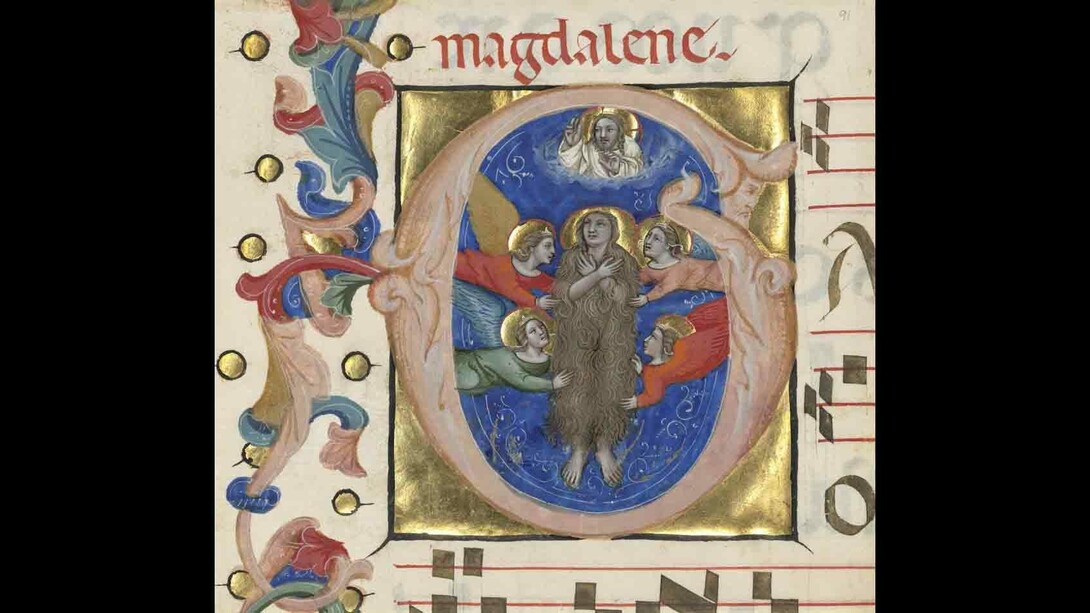 magdalene.
91
G
o